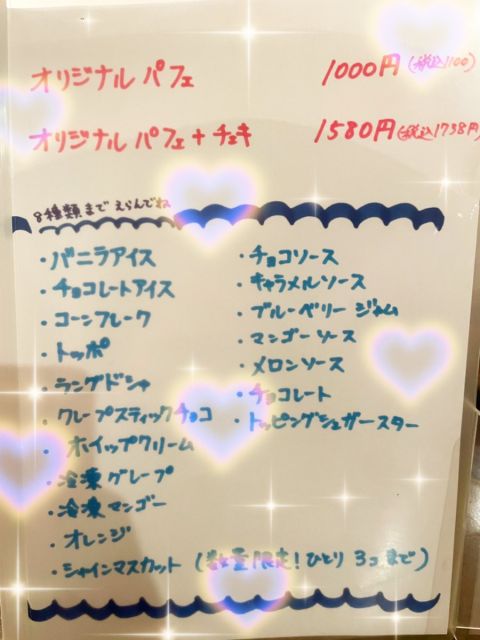 オリジナル パフェ 1000円(税込1100)
オリジナル パフェ + チェキ 1580円(税込1738円)
8種類まで えらんでね
・バニラアイス
・チョコレートアイス
・コーンフレーク
・トッポ
・ラングドシャ
・クレープスティックチョコ
・ホイップクリーム
・冷凍グレープ
・冷凍マンゴー
・オレンジ
・シャインマスカット (数量限定!ひとり 3コ まで)
・チョコソース
・キャラメルソース
・ブルーベリー ジャム
・マンゴーソース
・メロンソース
・チョコレート
・トッピングシュガースター